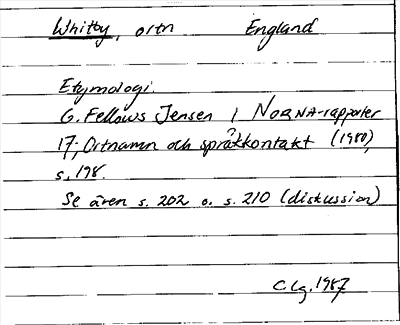 Whitby, ortn England
Etymologi.
G. Fellows Jensen i NORNA-rapporter
17, Ortnamn och språkkontakt (1980),
s. 198.
Se även s. 202 o. s. 210 (diskussion)
C. Lg. 1987